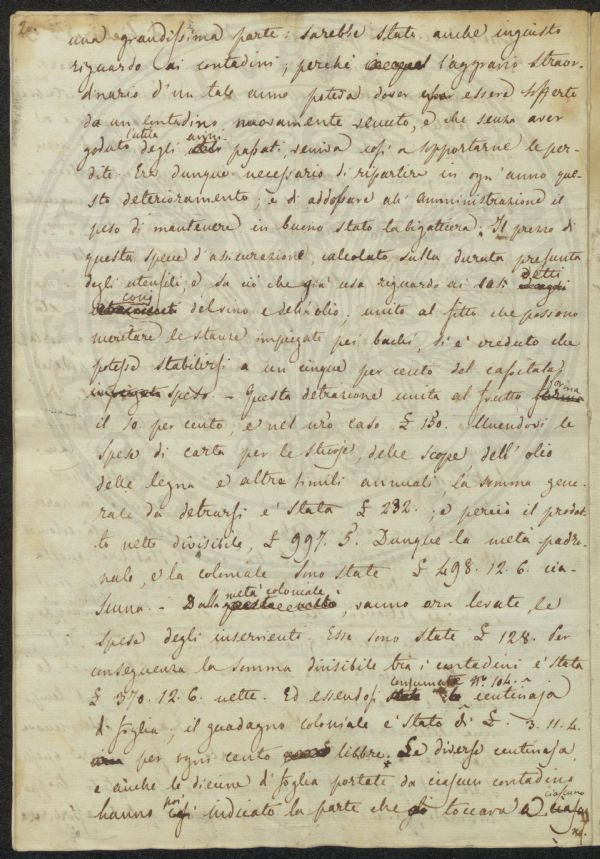 20.
una grandissima parte: sarebbe stato anche ingiusto
riguardo ai contadini; perché l'aggravio straor-
dinario d'un tale anno poteva dover essere sofferto
da un contadino nuovamente venuto, e che senza aver
goduto l'utile degli anni passati, veniva così a sopportarne le per-
dite. Era dunque necessario di ripartire in ogni anno que-
sto deterioramento; e di addossare all'amministrazione il
peso di mantenere in buono stato la bigattiera. Il prezzo di
questa specie d'assicurazione, calcolato sulla durata presunta
degli utensili, e su ciò che già usa riguardo ai detti
del vino e dell'olio; unito al fitto che possono
meritare le stanze impiegate pei bachi, si è creduto che
potesse stabilirsi a un cinque per cento del capitale
speso. - Questa detrazione unita al frutto forma
il 10. per cento, e nel nro caso £ 150. Unendovi le
spese di carta per le stuoje, delle scope, dell'olio
delle legna e altre simili annuali, la somma gene-
rale da detrarsi è stata £ 232.; e perciò il prodot-
to netto divisibile, £ 997. 5. Dunque la metà padro-
nale, e la coloniale sono state £ 498. 12. 6. cia-
scuna. - Dalla metà coloniale, vanno ora levate le
spese degli inservienti. Esse sono state £ 128. Per
conseguenza la somma divisibile tra i contadini è stata
£ 370. 12. 6. nette. Ed essendosi consumate No 104. centinaja
di foglia; il guadagno coloniale è stato di £. 3. 11. 4.
per ogni cento libbre. Le diverse centinaja
e anche le diecine di foglia portate da ciascun contadino
hanno poi indicato la parte che toccava a ciascuno